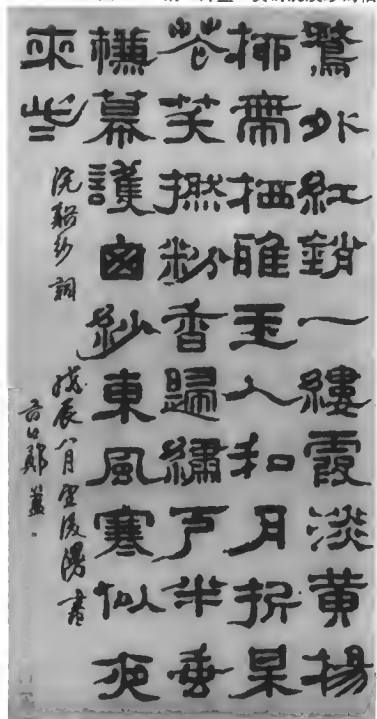 鶩外紅銷一縷霞淡黃楊
桺帶栖雅玉人和月折呆
花笑撚粉香歸繡戶半垂
槏幕護囪紗東風寒似夜
來些
浣谿紗詞 戊辰八月望後漫書
谷口鄭簠